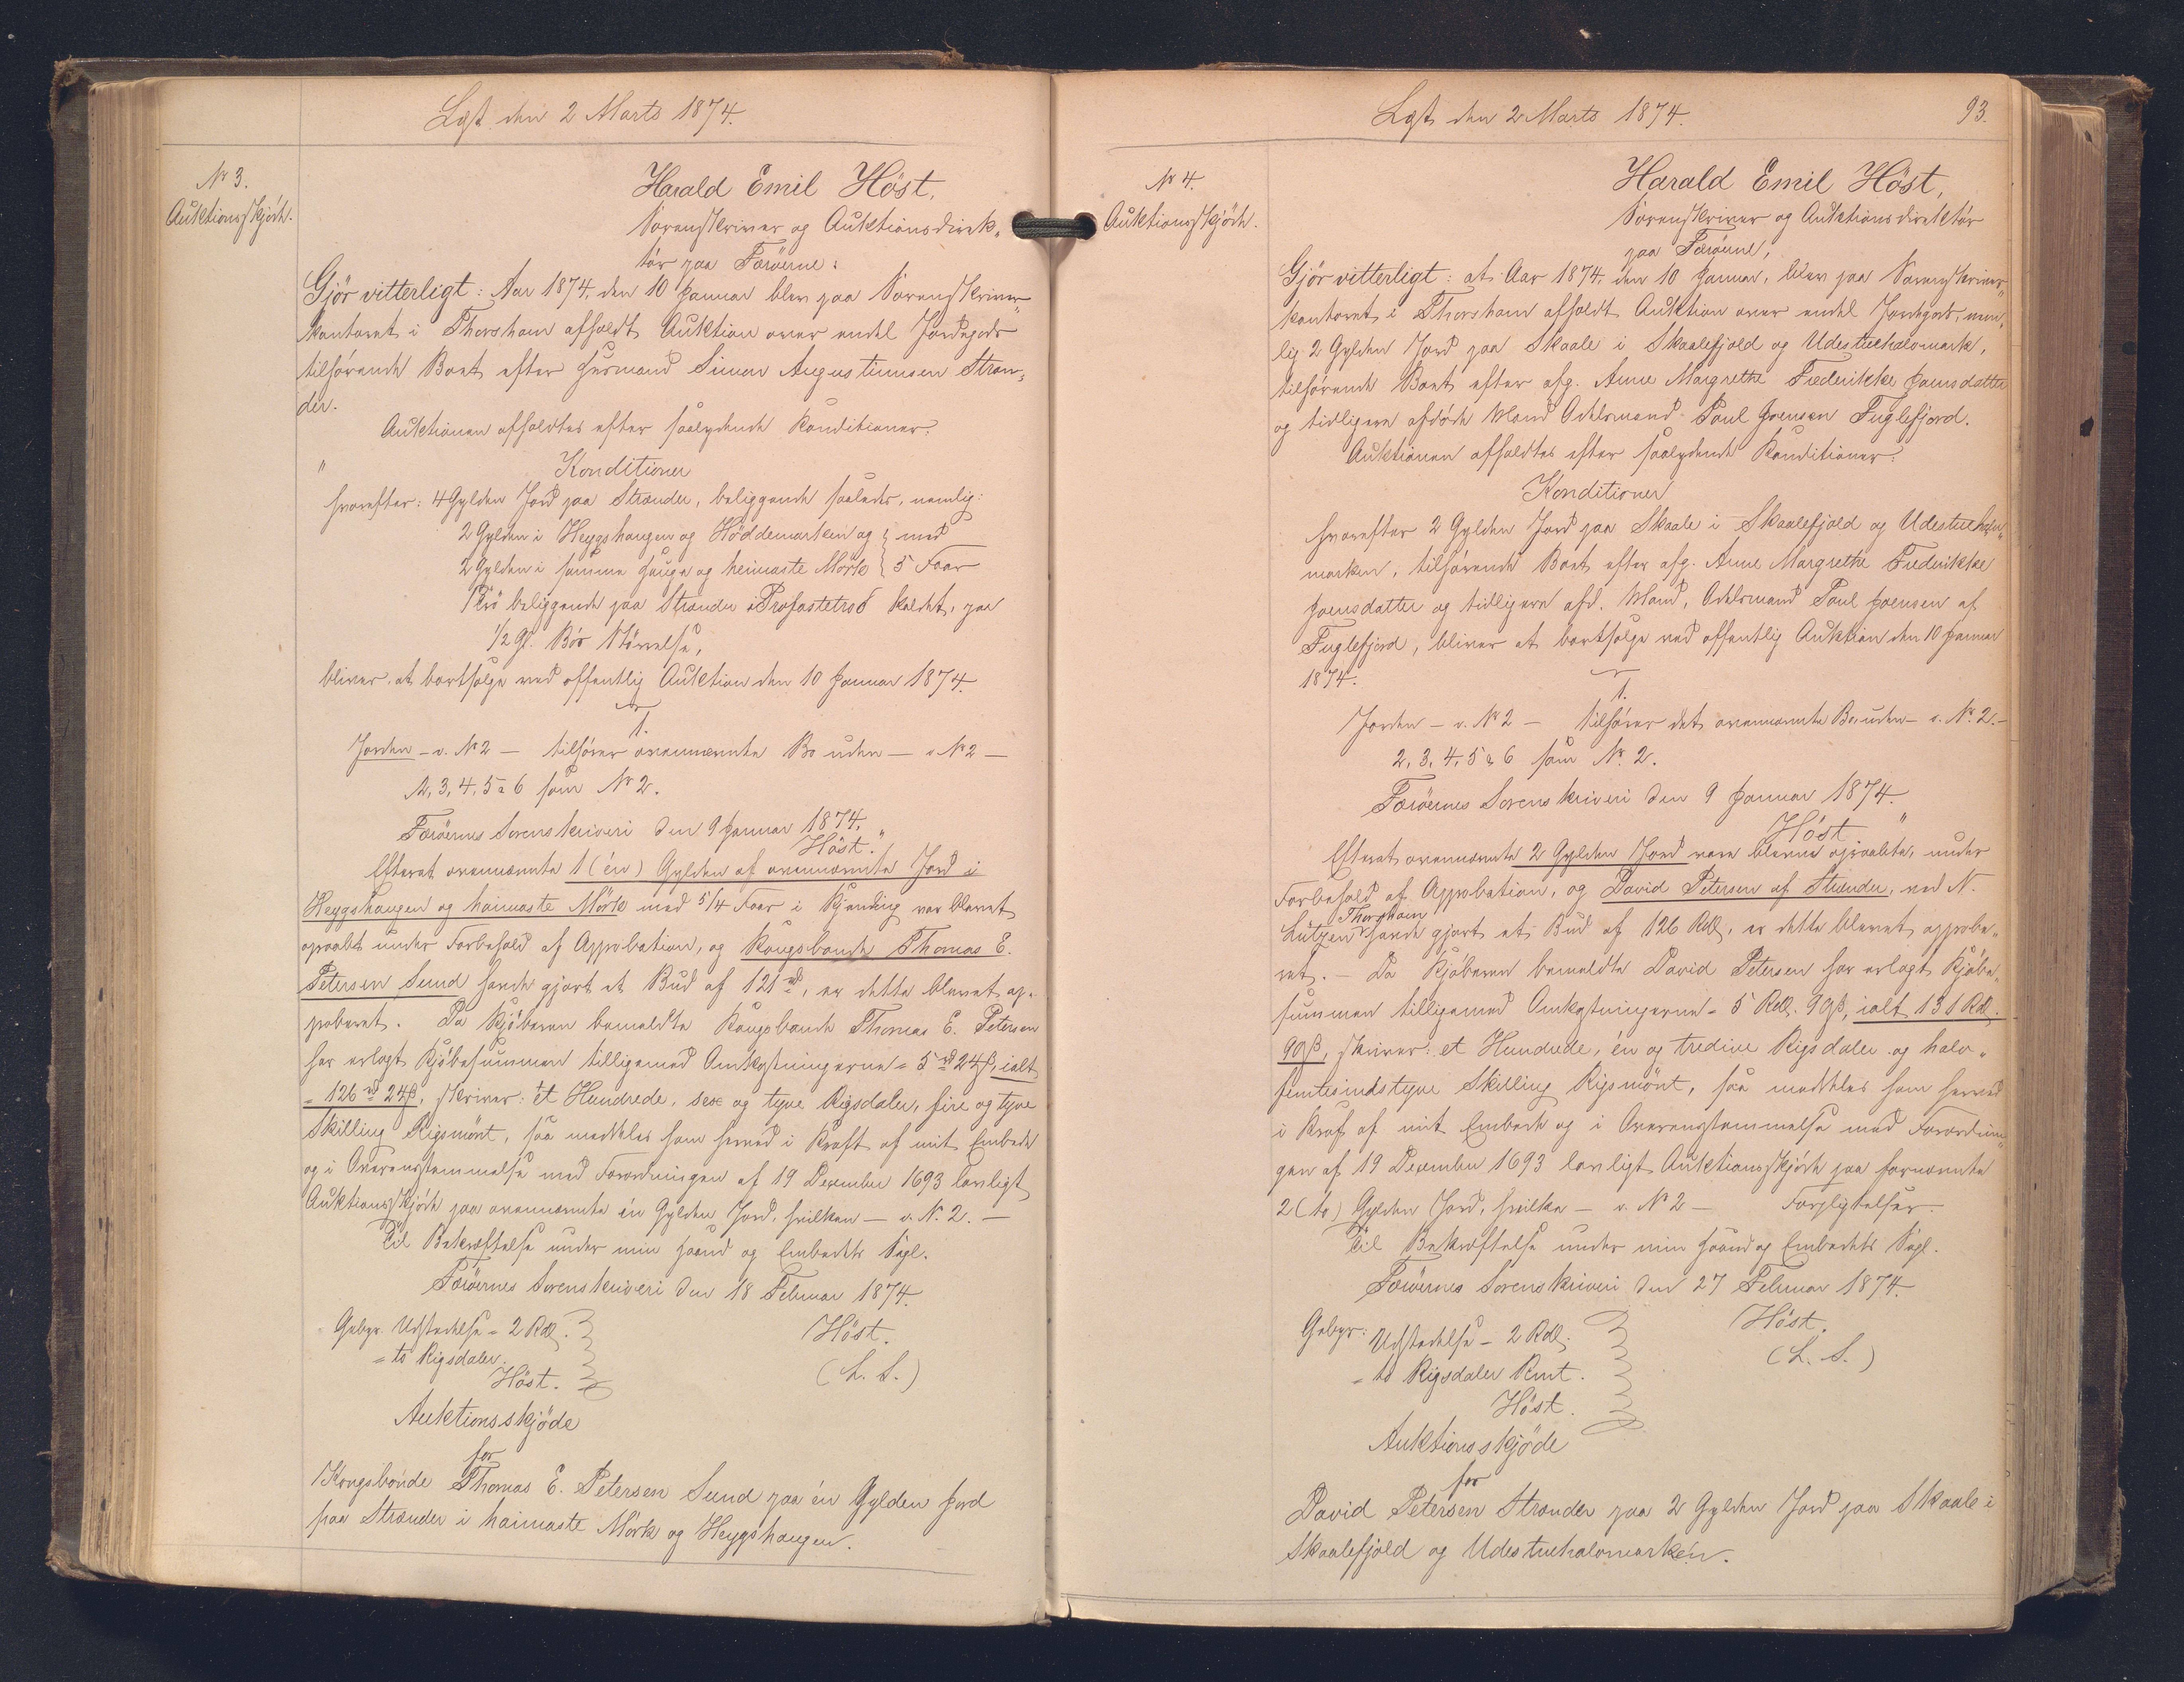 Lgst den 2 Marts 1874.
Nr 3.
Auktionsskjöde.
Harald Emil Höst,
Sorenskriver og Auktionsdirek„
tör paa Færöerne:
Gjör vitterligt: Aar 1874, den 10 Januar blev paa Sorenskriver„
kontoret i Thorshavn afholdt Auktion over endel Jordegods
tilhörende Boet efter Husmand Simon Augustinusen Stran„
der.
Auktionen afholdtes efter saalydende Konditioner:
„ Konditioner
hvorefter: 4 Gylden Jord paa Strænder, beliggende saaledes, nemlig:
2 Gylden i Heygshaugen og Höddemarken og } med
2 Gylden i samme Hauge og heimaste Mörk } 5 Faar
1 Trö beliggende paa Strænder i Profastetrod kaldet, paa
1/2 Gl. Bös Störrelse,
bliver at bortsælge ved offentlig Auktion den 10 Januar 1874.
1.
Jorden – v. Nr 2 – tilhörer ovennævnte Bo uden – v. Nr 2 –
2, 3, 4, 5 & 6 som Nr 2.
Færöernes Sorenskriveri den 9 Januar 1874.
Höst.„
Efterat ovennævnte 1 (én) Gylden af ovennævnte Jord i
Heygshaugen og haimaste Mörk med 5/4 Faar i Kjending var blevet
opraabt under Forbehold af Approbation, og Kongsbonde Thomas E.
Petersen Sund havde gjort et Bud af 121 rd, er dette blevet ap„
proberet. Da Kjöberen bemeldte Kongsbonde Thomas E. Petersen
har erlagt Kjöbesummen tilligemed Omkostningerne = 5 rd 24 ß, ialt
= 126 rd 24 ß, skriver: et Hundrede, sex og tyve Rigsdaler, fire og tyve
Skilling Rigsmönt, saa meddeles som herved i Kraft af mit Embede
og i Overensstemmelse med Forordningen af 19 December 1693 lovligt
Auktionsskjöde paa ovennævnte én Gylden Jord, hvilken – v. Nr. 2. –
Til Bekræftelse under min Haand og Embedets Segl.
Færöernes Sorenskriveri den 18 Februar 1874.
Gebyr. Udstedelse = 2 Rdl.
= to Rigsdaler.
Höst.
Höst.
(L. S.)
Auktionsskjöde
for
Kongsbonde Thomas E. Petersen Sund paa én Gylden Jord
paa Strænder i haimaste Mörk og Heygshaugen.
Lgst den 2 Marts 1874.
93.
Nr 4.
Auktionsskjöde.
Harald Emil Höst,
Sorenskriver og Auktionsdirektör
paa Færöerne,
Gjör vitterligt: at Aar 1874, den 10 Januar, blev paa Sorenskriver„
kontoret i Thorshavn afholdt Auktion over endel Jordegods, nem„
lig 2 Gylden Jord paa Skaale i Skaalefjold og Udestuehalomark,
tilhörende Boet efter afg. Anne Margrethe Frederikke Joensdatter
og tidligere afdöde Mand Odelsmand Poul Joensen Fuglefjord.
Auktionen afholdtes efter saalydende Konditioner:
Konditioner
hvorefter 2 Gylden Jord paa Skaale i Skaalefjold og Udestuehalo„
marken, tilhörende Boet efter afg. Anne Margrethe Frederikke
Joensdatter og tidligere afd. Mand, Odelsmand Poul Joensen af
Fuglefjord, bliver at bortsælge ved offentlig Auktion den 10 Januar
1874.
1.
Jorden – v. Nr 2 – tilhörer det ovennævnte Bo, uden – v. Nr. 2. –
2, 3, 4, 5 & 6 som Nr. 2.
Færöernes Sorenskriveri den 9 Januar 1874.
Höst „
Efterat ovennævnte 2 Gylden Jord vare blevne opraabte, under
Forbehold af Approbation, og David Petersen af Strænder, ved N.
Lützen Thorshavn havde gjort et Bud af 126 Rdl, er dette blevet approbe„
ret. – Da Kjöberen bemeldte David Petersen har erlagt Kjöbe„
summen tilligemed Omkostningerne = 5 Rdl. 90 ß, ialt 131 Rdl.
90 ß, skriver: et Hundrede, én og tredive Rigsdaler og halv„
femtesindstyve Skilling Rigsmönt, saa meddeles som herved
i Kraft af mit Embede og i Overensstemmelse med Forordnin„
gen af 19 December 1693 lovligt Auktionsskjöde paa fornævnte
2 (to) Gylden Jord, hvilke – v. Nr 2 – Forpligtelser.
Til Bekræftelse under min Haand og Embedets Segl.
Færöernes Sorenskriveri den 27 Februar 1874.
Gebyr: Udstedelse – 2 Rdl.
= to Rigsdaler Rmt.
Höst.
Höst.
(L. S.)
Auktionsskjöde
for
David Petersen Strænder paa 2 Gylden Jord paa Skaale i
Skaalefjold og Udestuehalomarken.